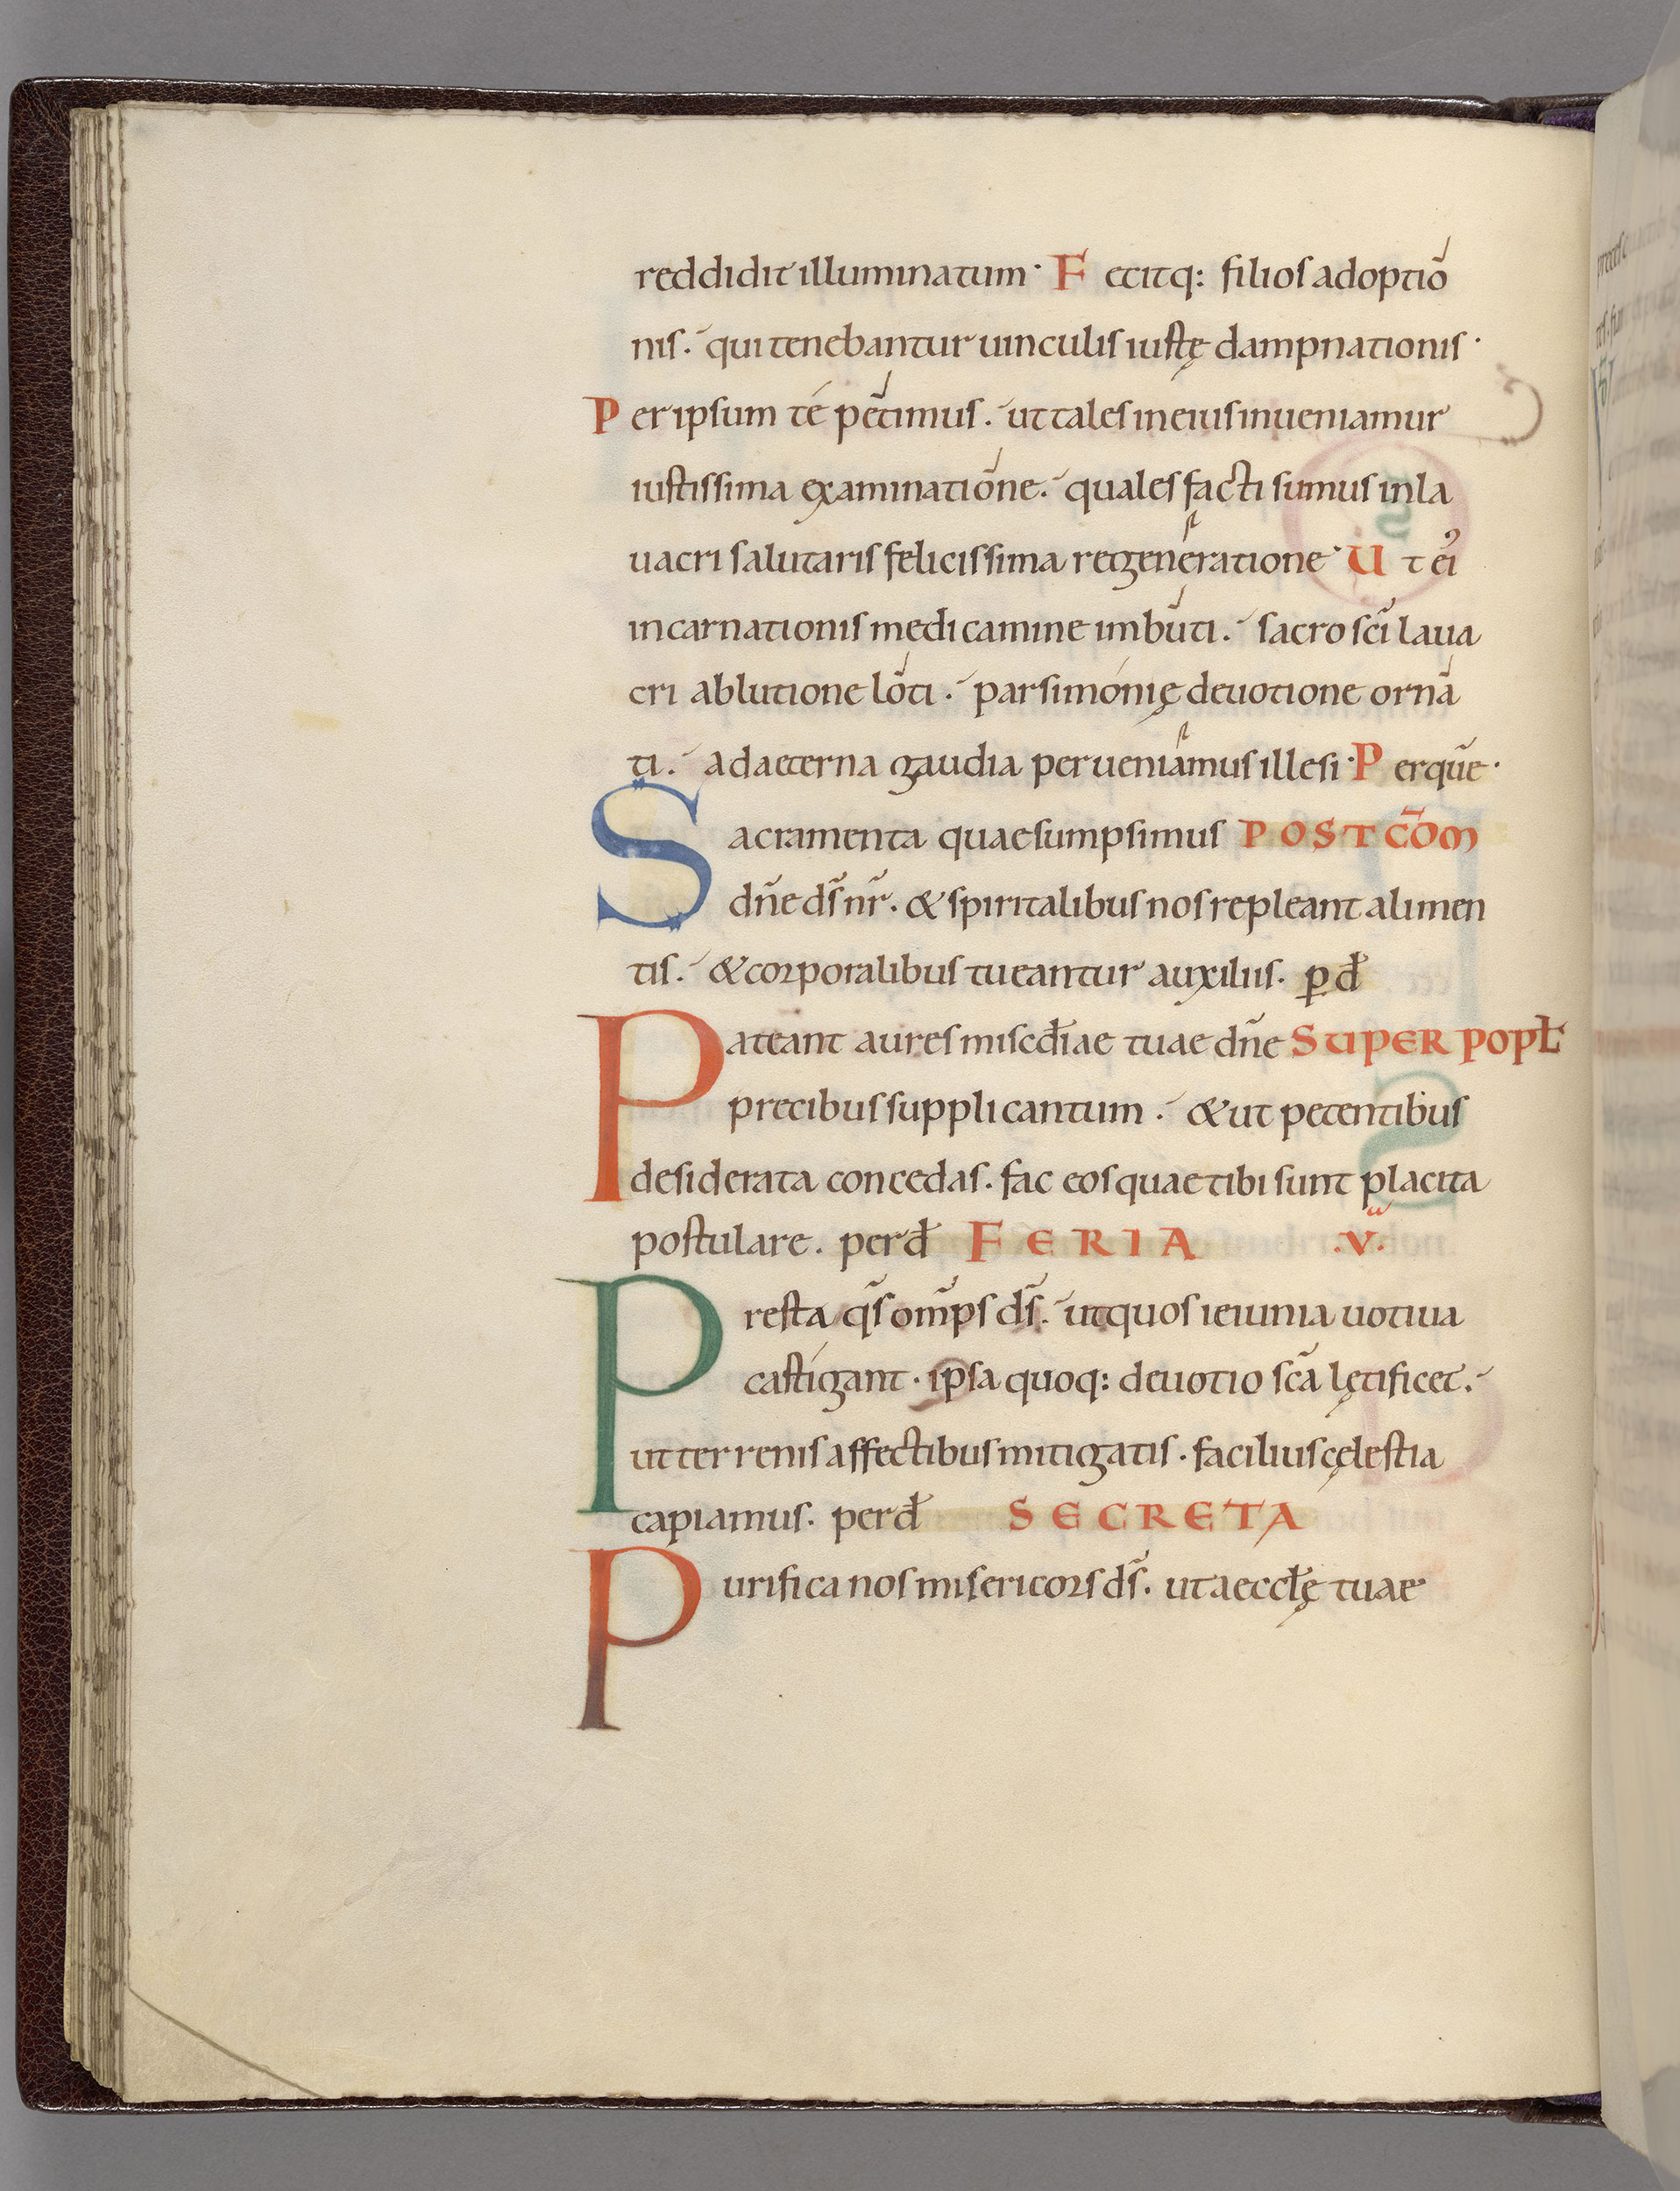 reddidit illuminatum · F ecitq: filios adoptio
nis. qui tenebantur uinculis iustę dampnationis ·
P er ipsum té petimus. ut tales in eius inueniamur
iustissima examinatione. quales facti sumus in la
uacri salutaris felicissima regeneratione · U t ei
incarnationis medicamine imbuti. sacro scī laua
cri ablutione loti. parsimónię deuotione orna
ti. ad aeterna gaudia perueniamus illesi · P er quē ·
S acramenta quae sumpsimus POST CŌM
dn̄e ds̄ nr̄. & spiritalibus nos repleant alimen
tis. & corporalibus tueantur auxiliis. ꝑ đ
P ateant aures misc̄điae tuae dn̄e SUPER POPŁ
precibus supplicantum. & ut petentibus
desiderata concedas. fac eos quae tibi sunt placita
postulare. per đ FERIA .V.
P resta qs̄ om̄ps ds̄. ut quos ieiunia uotiua
castígant · ipsa quoq: deuotio scā lętificet.
ut terrenis affectibus mitigatis. facilius cęlestia
capiamus. per đ SECRETA
P urifica nos misericors ds̄. ut aeccłę tuae